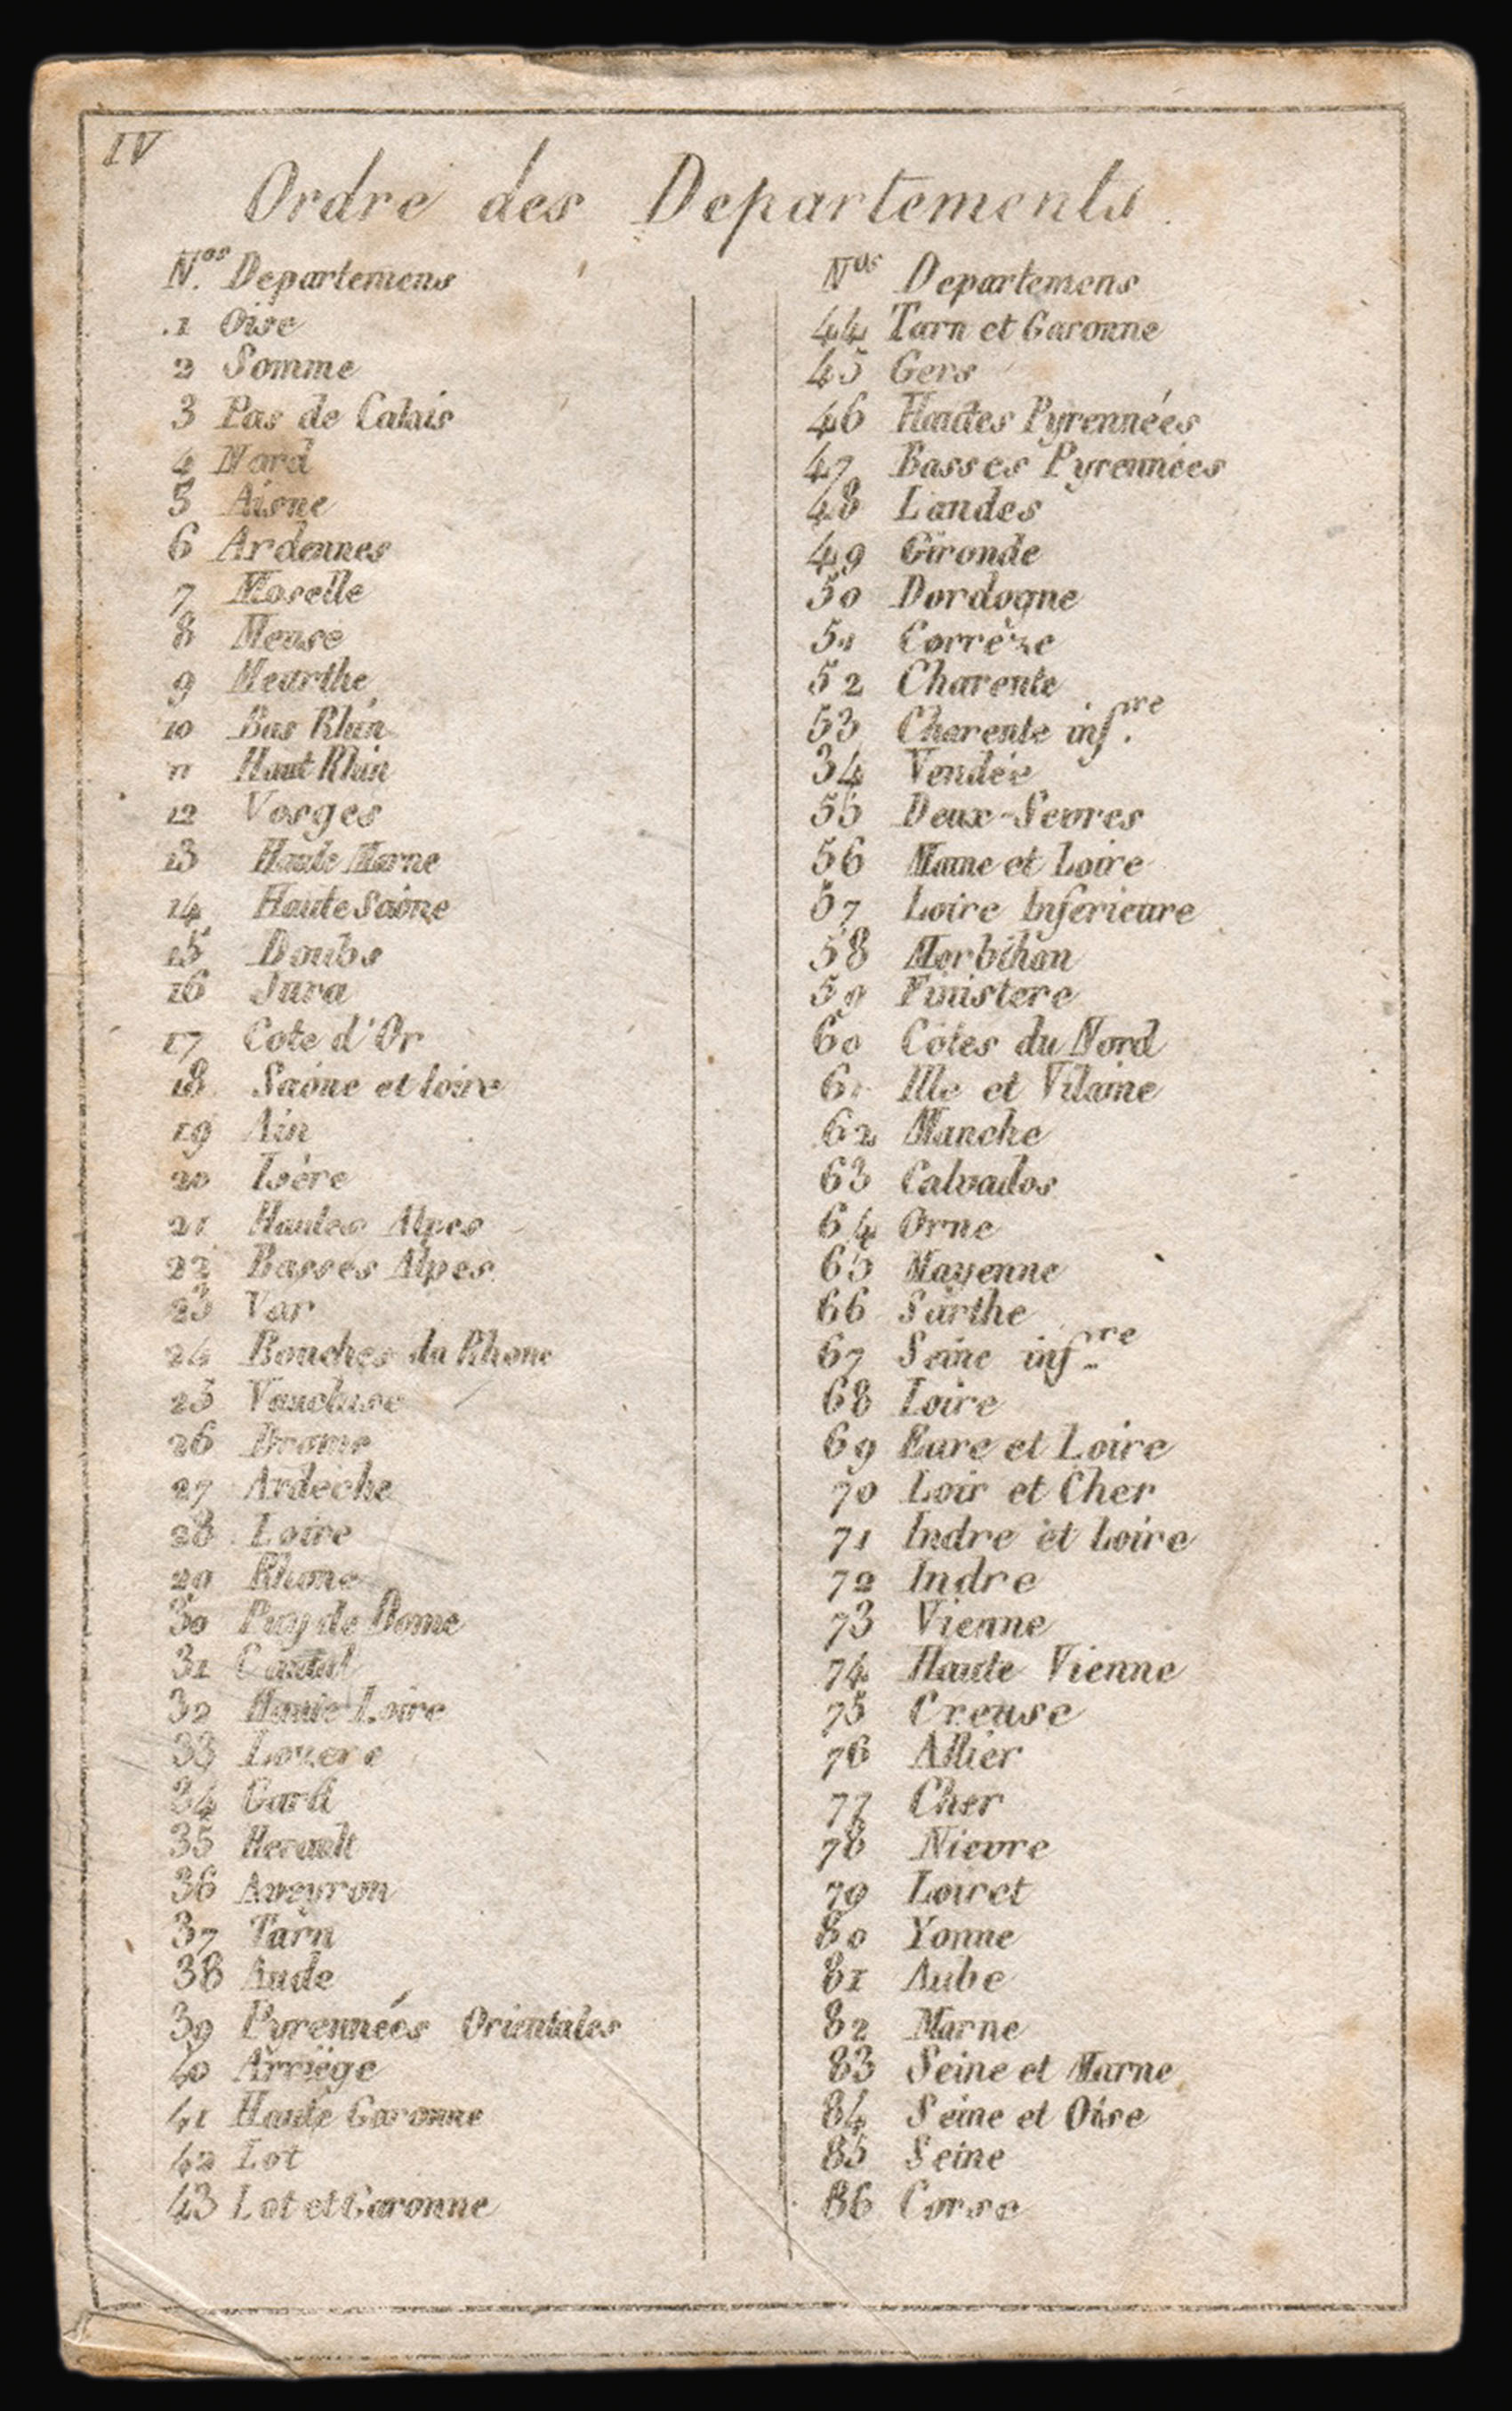 IV
Ordre des Departements
N.os Departemens
1 Oise
2 Somme
3 Pas de Calais
4 Nord
5 Aisne
6 Ardennes
7 Moselle
8 Meuse
9 Meurthe
10 Bas Rhin
11 Haut Rhin
12 Vosges
13 Haute Marne
14 Haute Saône
15 Doubs
16 Jura
17 Cote d'Or
18 Saône et loire
19 Ain
20 Isère
21 Hautes Alpes
22 Basses Alpes
23 Var
24 Bouches du Rhone
25 Vaucluse
26 Drome
27 Ardeche
28 Loire
29 Rhone
30 Puy de Dome
31 Cantal
32 Haute Loire
33 Lozere
34 Gard
35 Herault
36 Aveyron
37 Tarn
38 Aude
39 Pyrennées Orientales
40 Arriège
41 Haute Garonne
42 Lot
43 Lot et Garonne
Nos Departemens
44 Tarn et Garonne
45 Gers
46 Hautes Pyrennées
47 Basses Pyrennées
48 Landes
49 Gironde
50 Dordogne
51 Corrèze
52 Charente
53 Charente inf.re
34 Vendée
55 Deux-Sevres
56 Maine et Loire
57 Loire Inferieure
58 Morbihan
59 Finistere
60 Côtes du Nord
61 Ille et Vilaine
62 Manche
63 Calvados
64 Orne
65 Mayenne
66 Sarthe
67 Seine inf.re
68 Loire
69 Eure et Loire
70 Loir et Cher
71 Indre et Loire
72 Indre
73 Vienne
74 Haute Vienne
75 Creuse
76 Allier
77 Cher
78 Nievre
79 Loiret
80 Yonne
81 Aube
82 Marne
83 Seine et Marne
84 Seine et Oise
85 Seine
86 Corse